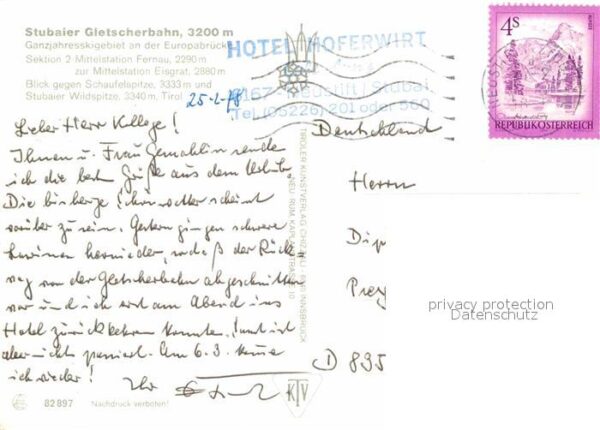 Stubaier Gletscherbahn, 3200 m
Ganzjahresskigebiet an der Europabrücke
Sektion 2 - Mittelstation Fernau, 2290m
zur Mittelstation Eisgrat, 2880 m
Blick gegen Schaufelspitze, 3333 m und
Stubaier Wildspitze, 3340 m, Tirol
HOTEL HOFERWIRT
6167 Neustift / Stubai
Tel (05226) 201 oder 560
4S
REPUBLIK ÖSTERREICH
25-2-78
Lieber Herr Kollege!
Ihnen u. Frau Gemahlin sende
ich die besten Grüße aus dem Urlaub.
Die bisherige scheint
vorüber zu sein. Gestern gingen schwere
Lawinen hernieder, sodaß der Rück-
weg von der Gletscherbahn abgeschnitten
war und ich erst am Abend ins
Hotel zurückkehren konnte. mir ist
aber nicht passiert. Am 6.3. komme
ich wieder! Ihr
Deutschland
Herrn
Dip
Prey
D 835
privacy protection
Datenschutz
TIROLER KUNSTVERLAG CHIZZALI · 6020 INNSBRUCK
NEU-RUM, KAPLANSTRASSE 10
KTV
82897 Nachdruck verboten!